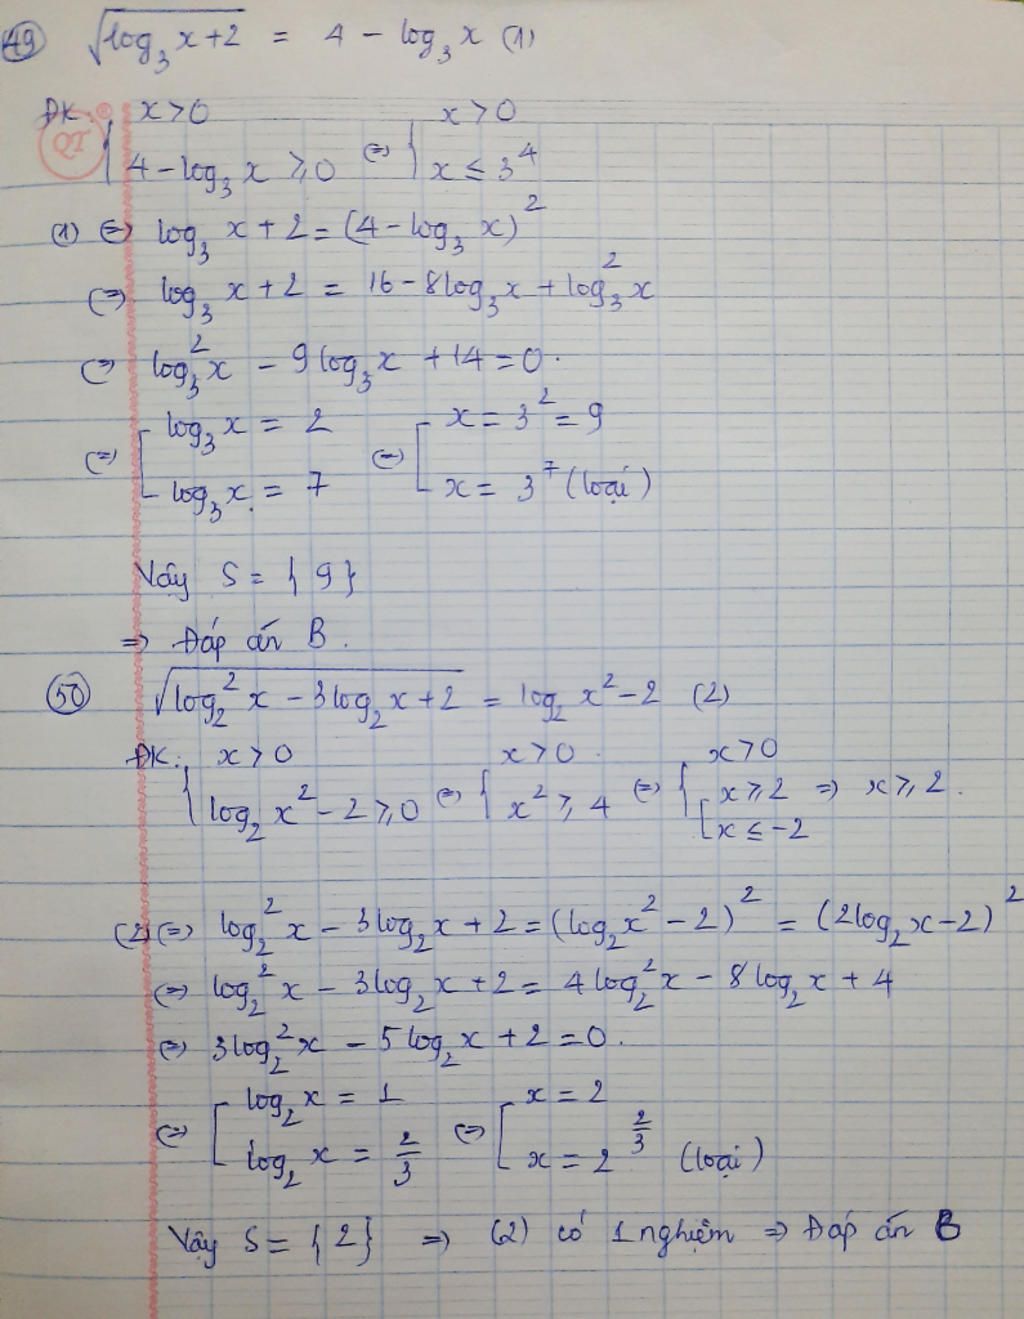 49 √(log₃ x + 2) = 4 - log₃ x (1)
ĐK: { x > 0
4 - log₃ x ⩾ 0 ⇔ { x > 0
x ≤ 3⁴
(1) ⇔ log₃ x + 2 = (4 - log₃ x)²
⇔ log₃ x + 2 = 16 - 8log₃ x + log₃² x
⇔ log₃² x - 9log₃ x + 14 = 0.
⇔ [ log₃ x = 2
log₃ x = 7 ⇔ [ x = 3² = 9
x = 3⁷ (loại)
Vậy S = { 9 }
⇒ Đáp án B.
50 √(log₂² x - 3log₂ x + 2) = log₂ x² - 2 (2)
ĐK: { x > 0
log₂ x² - 2 ⩾ 0 ⇔ { x > 0
x² ⩾ 4 ⇔ { x > 0
[ x ⩾ 2
x ≤ -2 ⇒ x ⩾ 2.
(2) ⇔ log₂² x - 3log₂ x + 2 = (log₂ x² - 2)² = (2log₂ x - 2)²
⇔ log₂² x - 3log₂ x + 2 = 4log₂² x - 8log₂ x + 4
⇔ 3log₂² x - 5log₂ x + 2 = 0.
⇔ [ log₂ x = 1
log₂ x = 2/3 ⇔ [ x = 2
x = 2^(2/3) (loại)
Vậy S = { 2 } ⇒ (2) có 1 nghiệm ⇒ Đáp án B